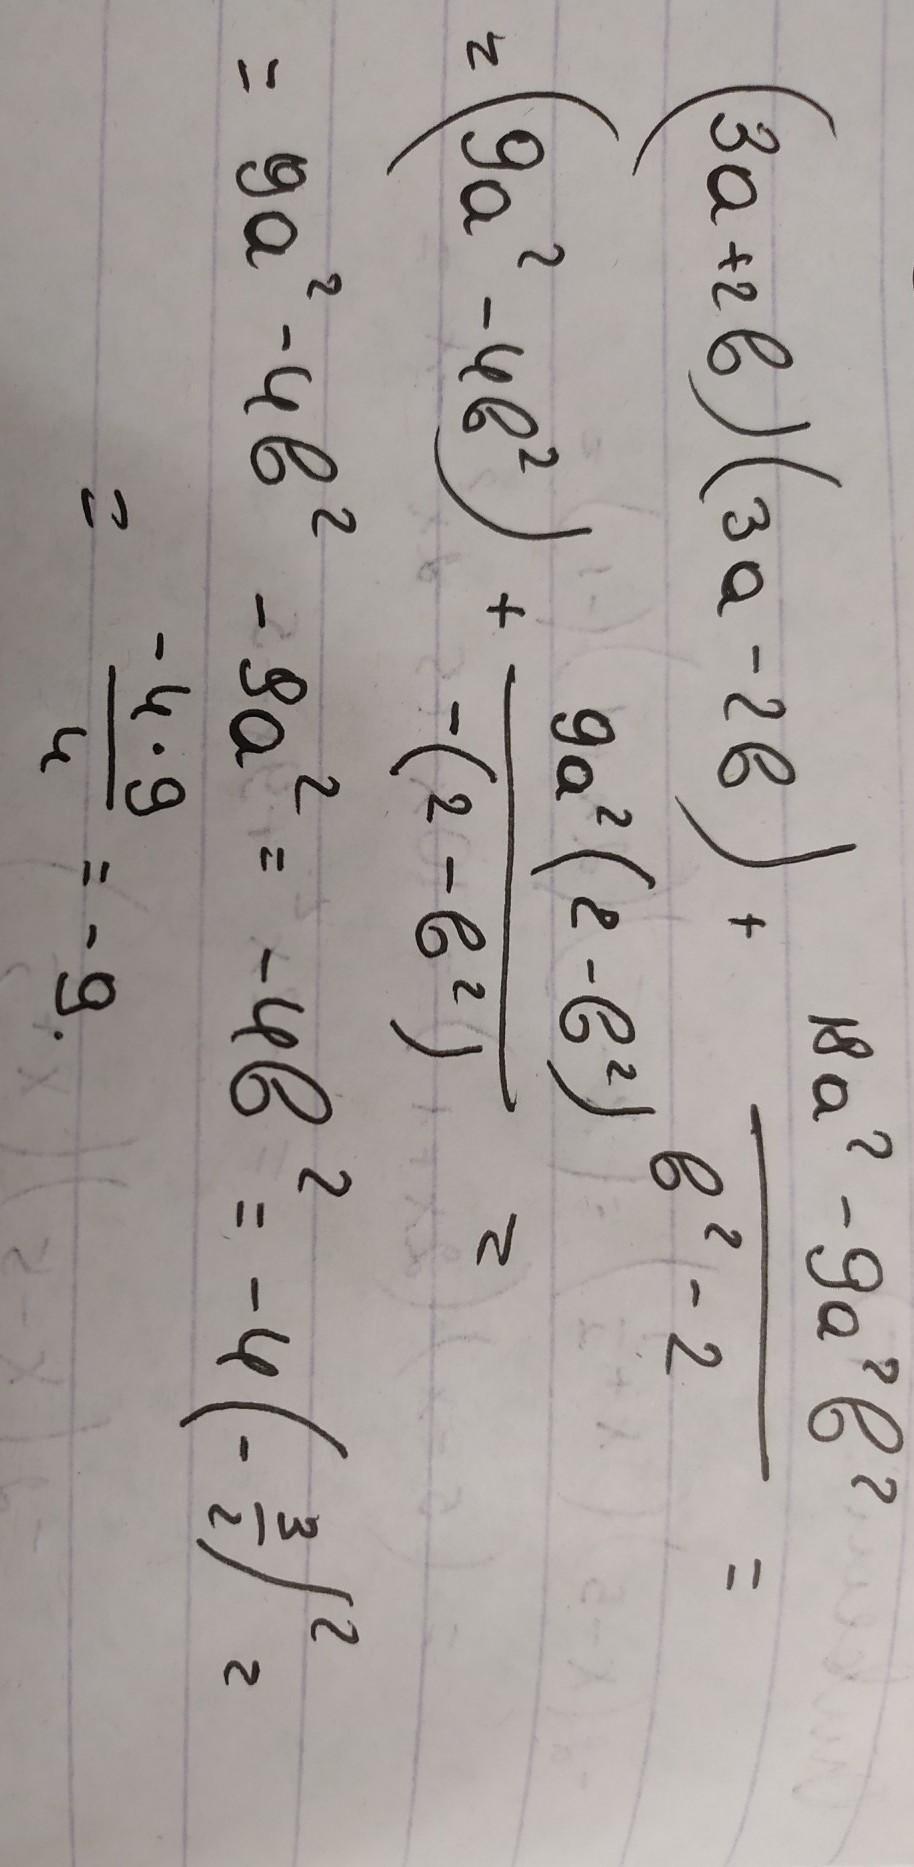 (3a+2b)(3a-2b) + (18a²-9a²b²)/(b²-2) =
=(9a²-4b²) + 9a²(2-b²)/-(2-b²) =
= 9a²-4b² -9a² = -4b² = -4(-3/2)² =
= -4·9/4 = -9.